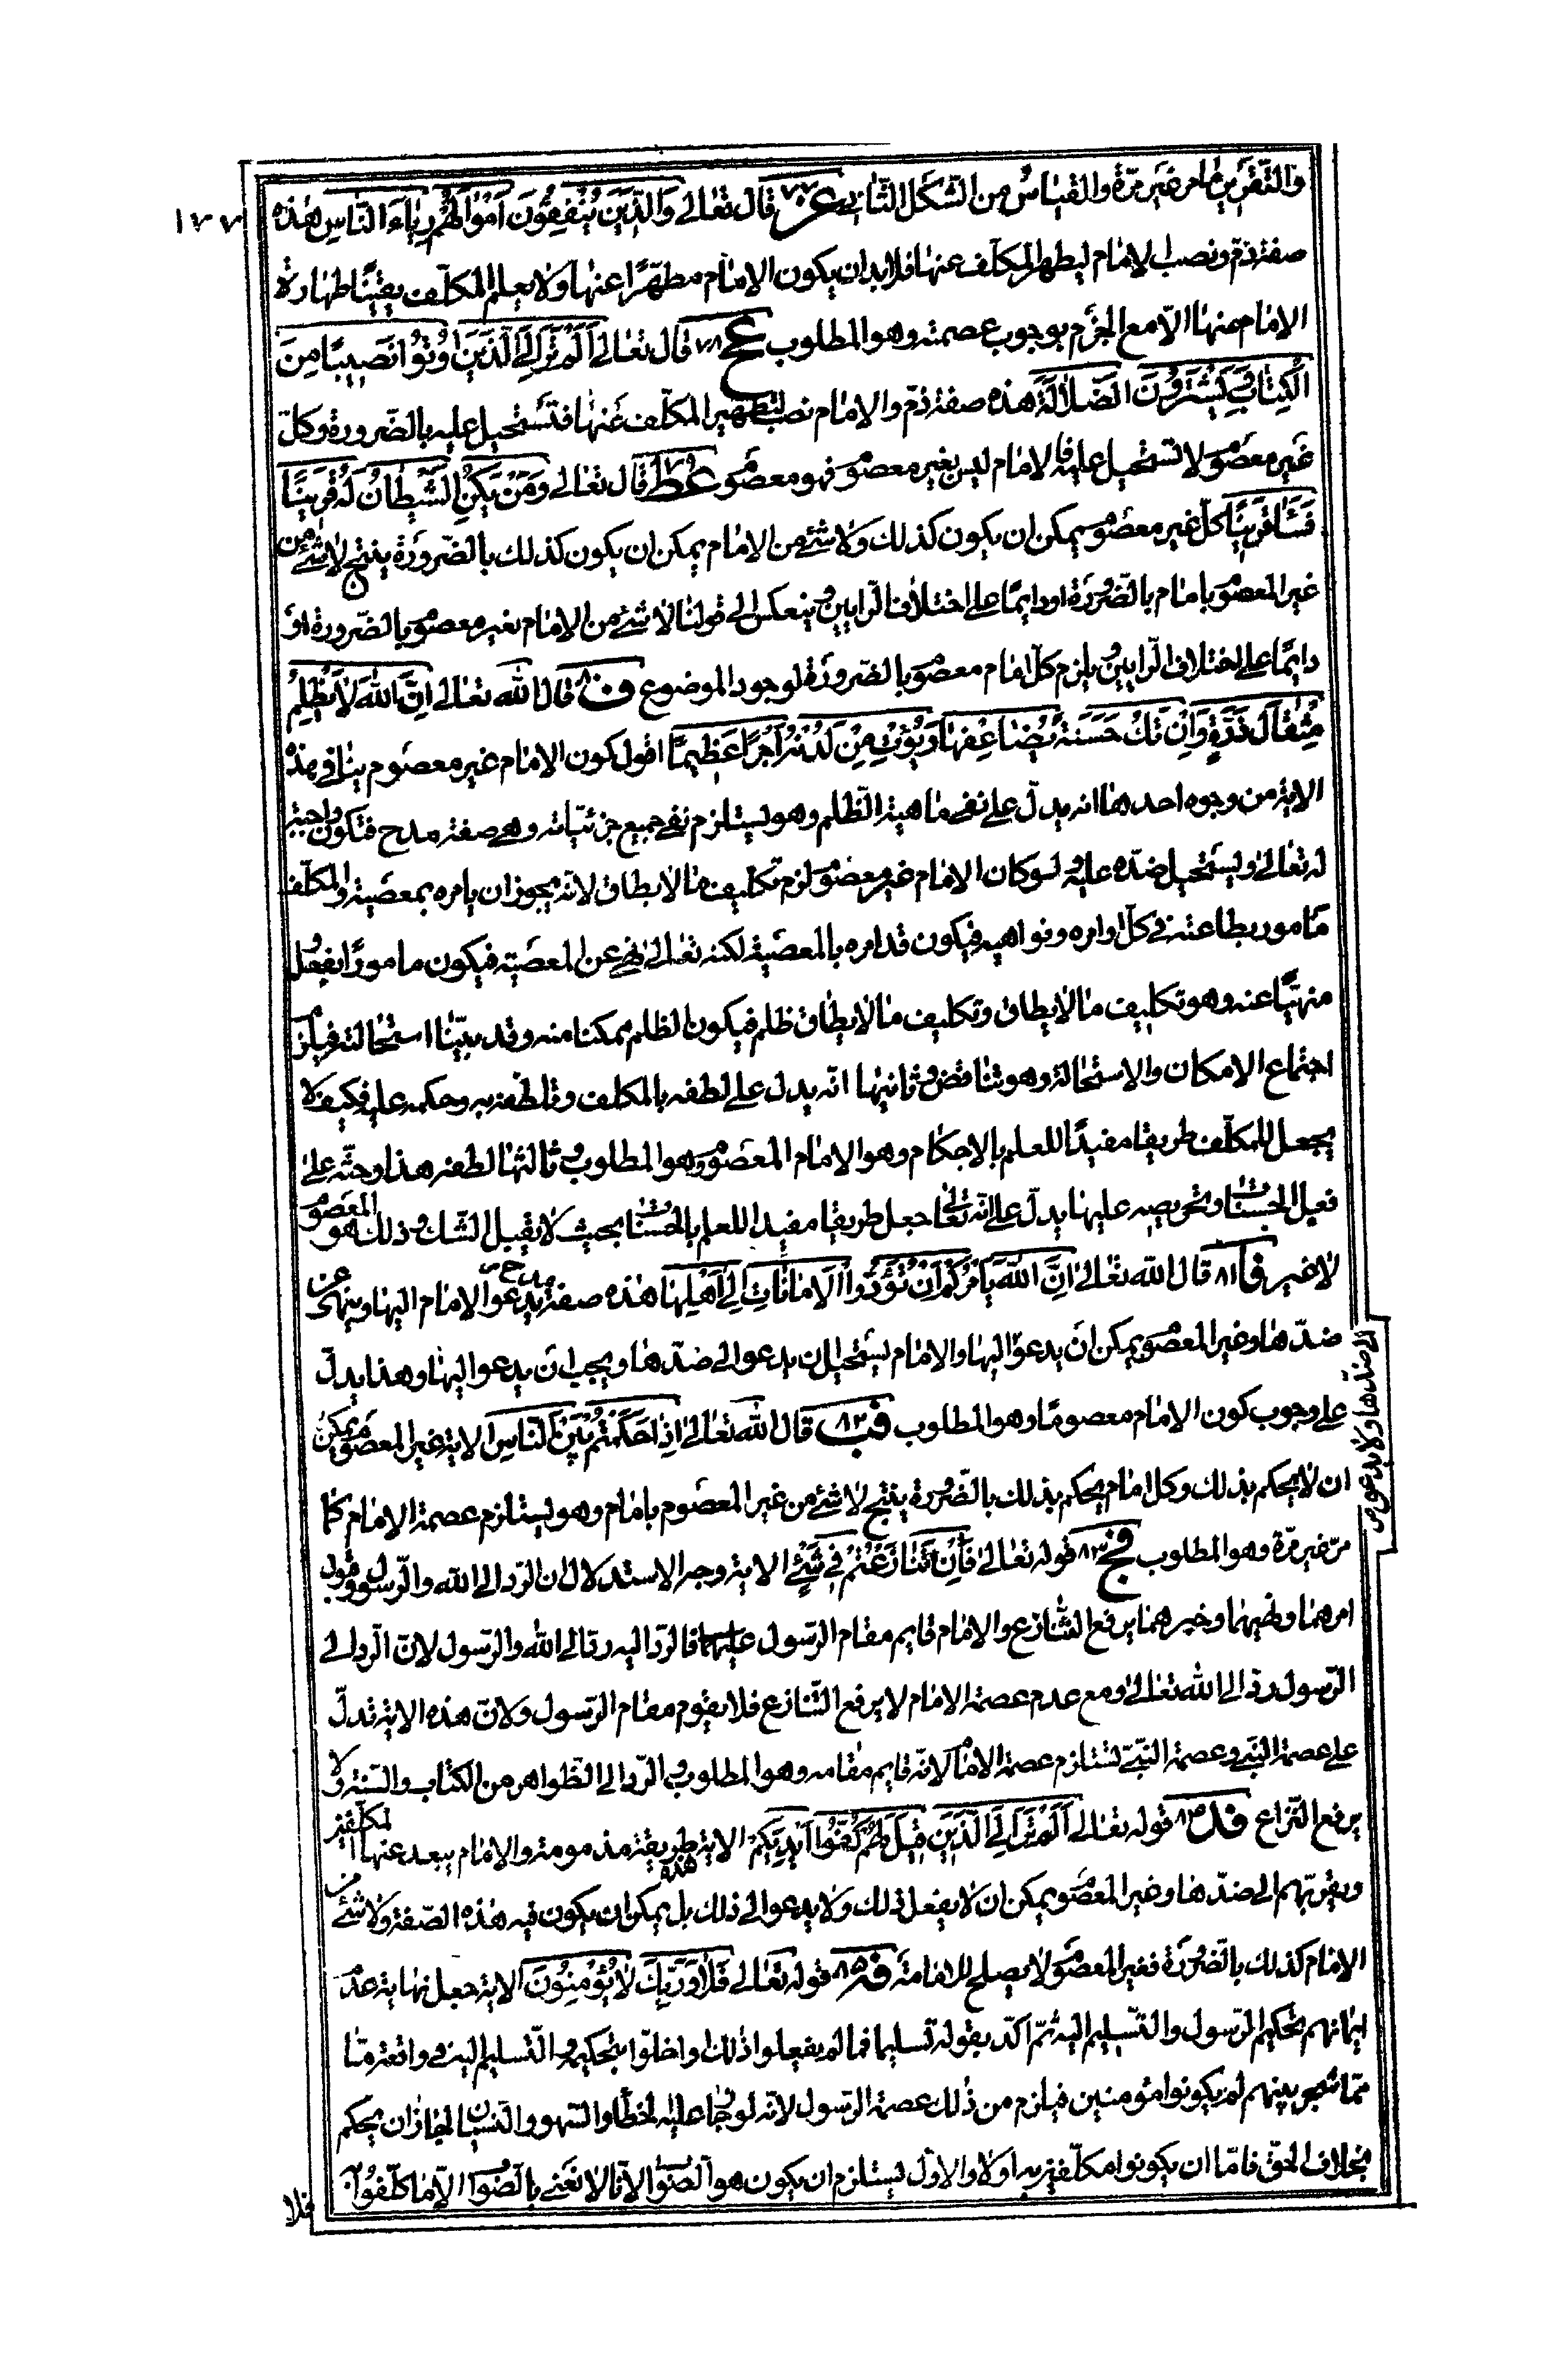 ١٧٧
والتقريب ما مر غير مرة والقياس من الشكل الثاني عز ٧٧ قال تعالى وَالَّذِينَ يُنْفِقُونَ أَمْوَالَهُمْ رِيَاءَ النَّاسِ هذه
صفة ذم ونصب الامام ليطهر المكلف عنها فلا بد ان يكون الامام مطهّرًا عنها ولا يعلم المكلف يقينًا طهارة
الامام عنها الا مع الجزم بوجوب عصمته وهو المطلوب عح ٧٨ قال تعالى أَلَمْ تَرَ إِلَى الَّذِينَ أُوتُوا نَصِيبًا مِنَ
الْكِتَابِ يَشْتَرُونَ الضَّلَالَةَ هذه صفة ذم والامام نصب لتطهير المكلف عنها فتستحيل عليه بالضرورة وكلّ
غير معصوم لا تستحيل عليه فالامام ليس بغير معصوم فهو معصوم عط ٧٩ قال تعالى وَمَنْ يَكُنِ الشَّيْطَانُ لَهُ قَرِينًا
فَسَاءَ قَرِينًا كلّ غير معصوم يمكن ان يكون كذلك ولا شئ من الامام يمكن ان يكون كذلك بالضرورة ينتج لا شئ من
غير المعصوم بامام بالضرورة او دايمًا على اختلاف الرايين وينعكس الى قولنا لا شئ من الامام بغير معصوم بالضرورة او
دايمًا على اختلاف الرايين ويلزم كل امام معصوم بالضرورة لوجود الموضوع ف ٨٠ قال الله تعالى إِنَّ اللَّهَ لَا يَظْلِمُ
مِثْقَالَ ذَرَّةٍ وَإِنْ تَكُ حَسَنَةً يُضَاعِفْهَا وَيُؤْتِ مِنْ لَدُنْهُ أَجْرًا عَظِيمًا اقول كون الامام غير معصوم ينافي هذه
الاية من وجوه احدها انه يدل على نفى ماهية الظلم وهو يستلزم نفى جميع جزئياته وهى صفة مدح فتكون واجبة
له تعالى ويستحيل ضده عليه ولو كان الامام غير معصوم لزم تكليف ما لا يطاق لانه يجوز ان يامره بمعصية والمكلف
مامور بطاعته فى كل اوامره ونواهيه فيكون قد امره بالمعصية لكنه تعالى نهى عن المعصية فيكون مامورًا بفعل
منهيًا عنه وهو تكليف ما لا يطاق وتكليف ما لا يطاق ظلم فيكون الظلم ممكنا منه وقد بيّنا استحالته فيلزم
اجتماع الامكان والاستحالة وهو تناقض وثانيها انه يدل على لطفه بالمكلف وتلطفه به وحكمه عليه فكيف لا
يجعل للمكلف طريقا مفيدًا للعلم بالاحكام وهو الامام المعصوم وهو المطلوب وثالثها لطفه هذا وحثّه على
فعل الحسنات وتحريصه عليها يدل على انه تعالى جعل طريقا مفيدا للعلم بالحسنات بحيث لا يقبل الشك وذلك هو المعصوم
لا غير فا ٨١ قال الله تعالى إِنَّ اللَّهَ يَأْمُرُكُمْ أَنْ تُؤَدُّوا الْأَمَانَاتِ إِلَى أَهْلِهَا هذه صفة مدح يدعو الامام اليها وينهى عن
ضدّها وغير المعصوم يمكن ان يدعو اليها والامام يستحيل ان يدعو الى ضدّها ويجب ان يدعو اليها وهذا يدلّ
الى ضدها ولا يدعو ص
على وجوب كون الامام معصومًا وهو المطلوب فب ٨٢ قال الله تعالى إِذَا حَكَمْتُمْ بَيْنَ النَّاسِ الاية غير المعصوم يمكن
ان لا يحكم بذلك وكل امام يحكم بذلك بالضرورة ينتج لا شئ من غير المعصوم بامام وهو يستلزم عصمة الامام كما
مرّ غير مرّة وهو المطلوب فج ٨٣ قوله تعالى فَإِنْ تَنَازَعْتُمْ فِي شَيْءٍ الاية وجه الاستدلال ان الرد الى الله والرسول وقبول
امرهما ونهيهما وخبرهما يرفع التنازع والامام قايم مقام الرسول عليهما فالرد اليه رد الى الله والرسول لان الرد الى
الرسول رد الى الله تعالى ومع عدم عصمة الامام لا يرفع التنازع فلا يقوم مقام الرسول ولان هذه الاية تدلّ
على عصمة النبى وعصمة النبىّ تستلزم عصمة الامام لانه قايم مقامه وهو المطلوب والرد الى الظواهر من الكتاب والسنة ولا
يرفع النزاع فد ٨٤ قوله تعالى أَلَمْ تَرَ إِلَى الَّذِينَ قِيلَ لَهُمْ كُفُّوا أَيْدِيَكُمْ الاية هذه طريقة مذمومة والامام يبعد عنها المكلفين
ويقربهم الى ضدّها وغير المعصوم يمكن ان لا يفعل ذلك ولا يدعو الى ذلك بل يمكن ان يكون فيه هذه الصفة ولا شئ من
الامام كذلك بالضرورة فغير المعصوم لا يصلح للامامة فه ٨٥ قوله تعالى فَلَا وَرَبِّكَ لَا يُؤْمِنُونَ الاية جعل نهاية عدم
ايمانهم تحكيم الرسول والتسليم اليه ثمّ اكّد بقوله تسليما فما لم يفعلوا ذلك واخلّوا بتحكيمه والتسليم اليه فى واقعة مّا
ممّا شجر بينهم لم يكونوا مؤمنين فيلزم من ذلك عصمة الرسول لانه لو جاز عليه الخطأ والسهو والنسيان لجاز ان يحكم
بخلاف الحق فامّا ان يكونوا مكلّفين به او لا والاول يستلزم ان يكون هو الصواب لانا لا نعنى بالصواب الا ما كلّفوا به
فلا